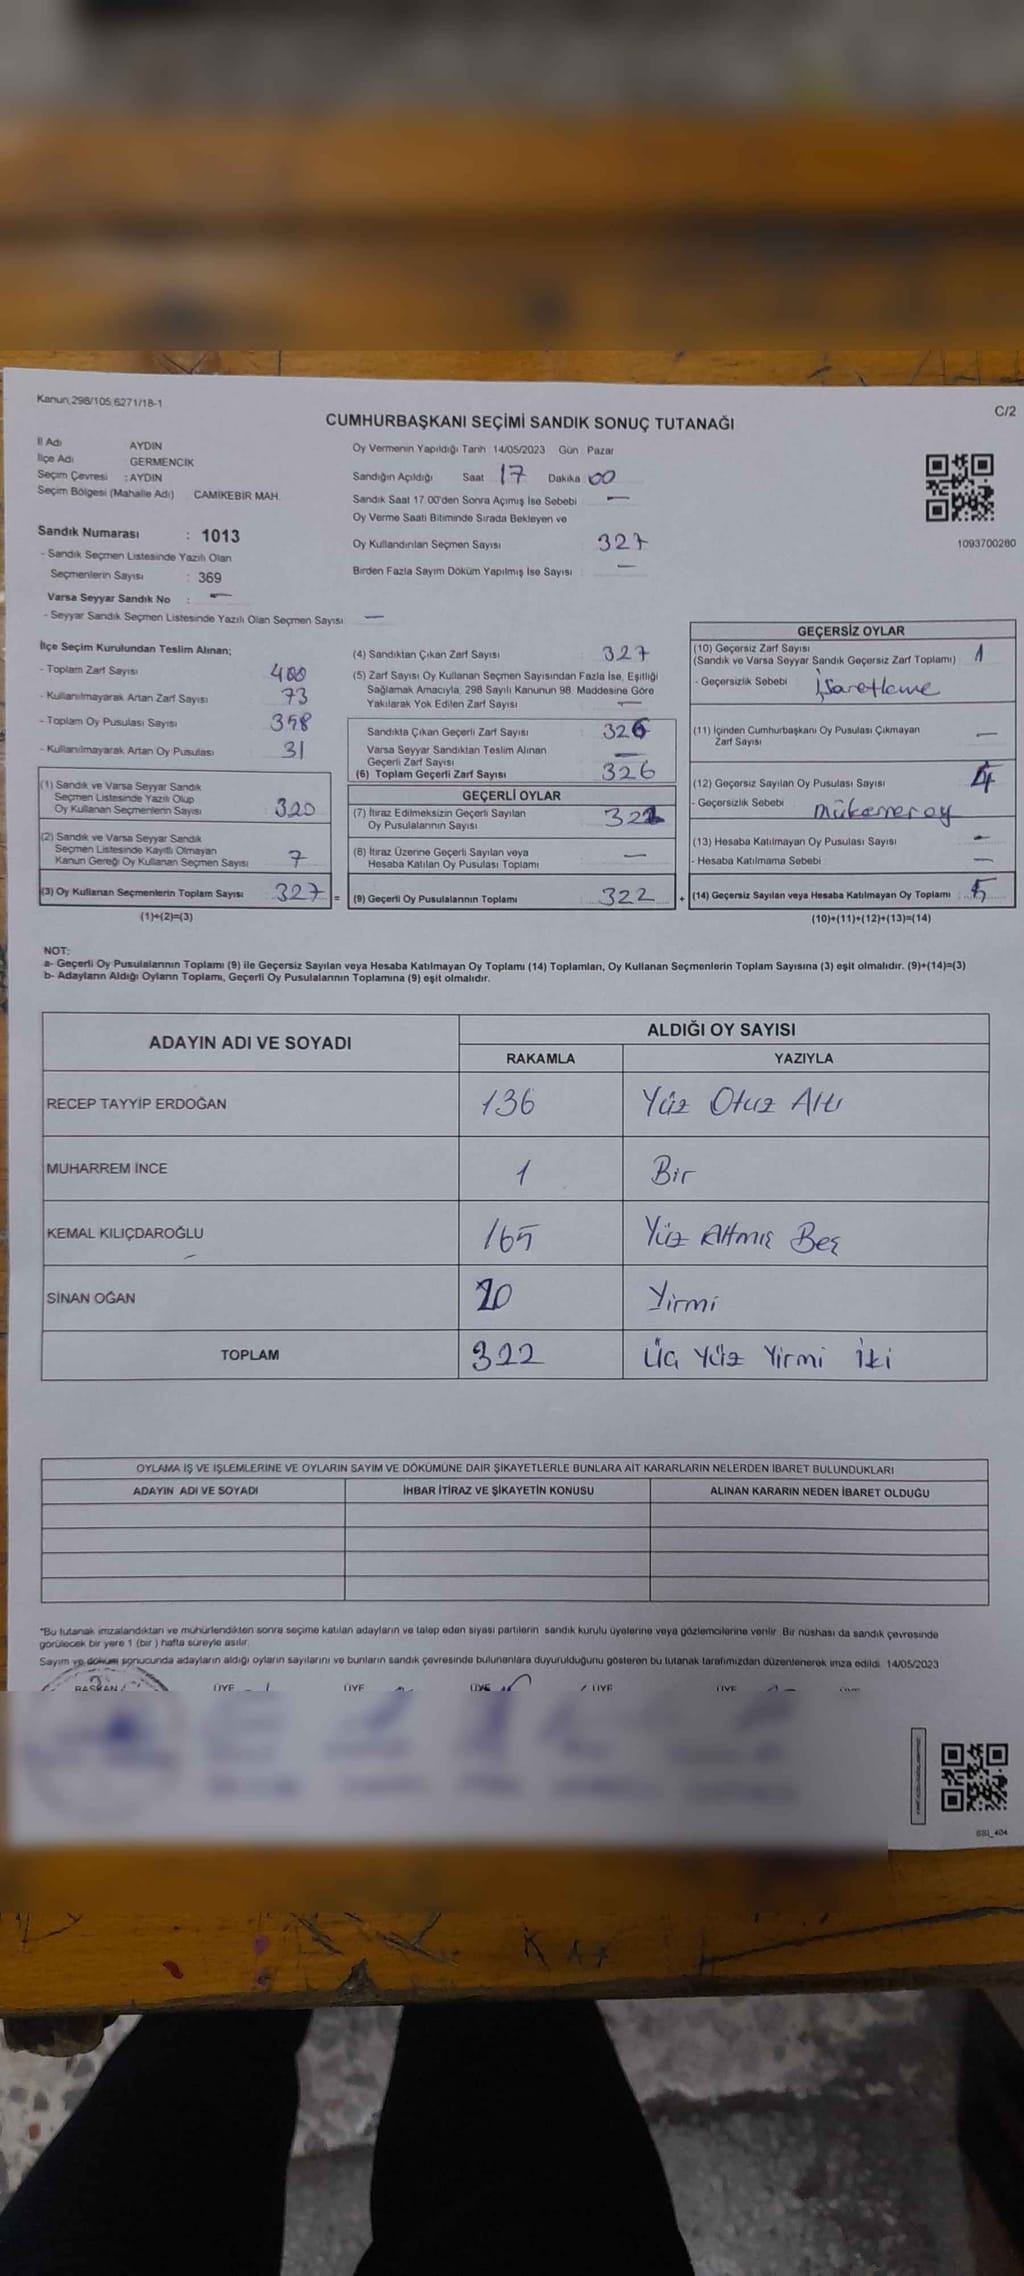 Kanun,298/105,6271/18-1
C/2
CUMHURBAŞKANI SEÇİMİ SANDIK SONUÇ TUTANAĞI
İl Adı AYDIN
İlçe Adı GERMENCİK
Seçim Çevresi : AYDIN
Seçim Bölgesi (Mahalle Adı) CAMİKEBİR MAH.
Sandık Numarası : 1013
- Sandık Seçmen Listesinde Yazılı Olan
Seçmenlerin Sayısı : 369
Varsa Seyyar Sandık No : —
- Seyyar Sandık Seçmen Listesinde Yazılı Olan Seçmen Sayısı —
Oy Vermenin Yapıldığı Tarih 14/05/2023 Gün : Pazar
Sandığın Açıldığı Saat 17 Dakika 00
Sandık Saat 17.00'den Sonra Açımış İse Sebebi : —
Oy Verme Saati Bitiminde Sırada Bekleyen ve
Oy Kullandırılan Seçmen Sayısı 327
Birden Fazla Sayım Döküm Yapılmış İse Sayısı : —
1093700280
İlçe Seçim Kurulundan Teslim Alınan;
- Toplam Zarf Sayısı 400
- Kullanılmayarak Artan Zarf Sayısı 73
- Toplam Oy Pusulası Sayısı 358
- Kullanılmayarak Artan Oy Pusulası 31
(1) Sandık ve Varsa Seyyar Sandık
Seçmen Listesinde Yazılı Olup
Oy Kullanan Seçmenlerin Sayısı 320
(2) Sandık ve Varsa Seyyar Sandık
Seçmen Listesinde Kayıtlı Olmayan
Kanun Gereği Oy Kullanan Seçmen Sayısı 7
(3) Oy Kullanan Seçmenlerin Toplam Sayısı 327 =
(1)+(2)=(3)
(4) Sandıktan Çıkan Zarf Sayısı 327
(5) Zarf Sayısı Oy Kullanan Seçmen Sayısından Fazla İse, Eşitliği
Sağlamak Amacıyla, 298 Sayılı Kanunun 98. Maddesine Göre
Yakılarak Yok Edilen Zarf Sayısı —
Sandıkta Çıkan Geçerli Zarf Sayısı 326
Varsa Seyyar Sandıktan Teslim Alınan
Geçerli Zarf Sayısı —
(6) Toplam Geçerli Zarf Sayısı 326
GEÇERLİ OYLAR
(7) İtiraz Edilmeksizin Geçerli Sayılan
Oy Pusulalarının Sayısı 322
(8) İtiraz Üzerine Geçerli Sayılan veya
Hesaba Katılan Oy Pusulası Toplamı —
(9) Geçerli Oy Pusulalarının Toplamı 322 +
GEÇERSİZ OYLAR
(10) Geçersiz Zarf Sayısı
(Sandık ve Varsa Seyyar Sandık Geçersiz Zarf Toplamı) 1
- Geçersizlik Sebebi : İşaretleme
(11) İçinden Cumhurbaşkanı Oy Pusulası Çıkmayan
Zarf Sayısı —
(12) Geçersiz Sayılan Oy Pusulası Sayısı 4
- Geçersizlik Sebebi : mükerrer oy
(13) Hesaba Katılmayan Oy Pusulası Sayısı —
- Hesaba Katılmama Sebebi : —
(14) Geçersiz Sayılan veya Hesaba Katılmayan Oy Toplamı : 5
(10)+(11)+(12)+(13)=(14)
NOT:
a- Geçerli Oy Pusulalarının Toplamı (9) ile Geçersiz Sayılan veya Hesaba Katılmayan Oy Toplamı (14) Toplamları, Oy Kullanan Seçmenlerin Toplam Sayısına (3) eşit olmalıdır. (9)+(14)=(3)
b- Adayların Aldığı Oyların Toplamı, Geçerli Oy Pusulalarının Toplamına (9) eşit olmalıdır.
ADAYIN ADI VE SOYADI
ALDIĞI OY SAYISI
RAKAMLA YAZIYLA
RECEP TAYYİP ERDOĞAN 136 Yüz Otuz Altı
MUHARREM İNCE 1 Bir
KEMAL KILIÇDAROĞLU 165 Yüz Altmış Beş
SİNAN OĞAN 20 Yirmi
TOPLAM 322 Üç Yüz Yirmi İki
OYLAMA İŞ VE İŞLEMLERİNE VE OYLARIN SAYIM VE DÖKÜMÜNE DAİR ŞİKAYETLERLE BUNLARA AİT KARARLARIN NELERDEN İBARET BULUNDUKLARI
ADAYIN ADI VE SOYADI İHBAR İTİRAZ VE ŞİKAYETİN KONUSU ALINAN KARARIN NEDEN İBARET OLDUĞU
*Bu tutanak imzalandıktan ve mühürlendikten sonra seçime katılan adayların ve talep eden siyasi partilerin sandık kurulu üyelerine veya gözlemcilerine verilir. Bir nüshası da sandık çevresinde
görülecek bir yere 1 (bir ) hafta süreyle asılır.
Sayım ve döküm sonucunda adayların aldığı oyların sayılarını ve bunların sandık çevresinde bulunanlara duyurulduğunu gösteren bu tutanak tarafımızdan düzenlenerek imza edildi. 14/05/2023
BAŞKAN ÜYE ÜYE ÜYE ÜYE ÜYE